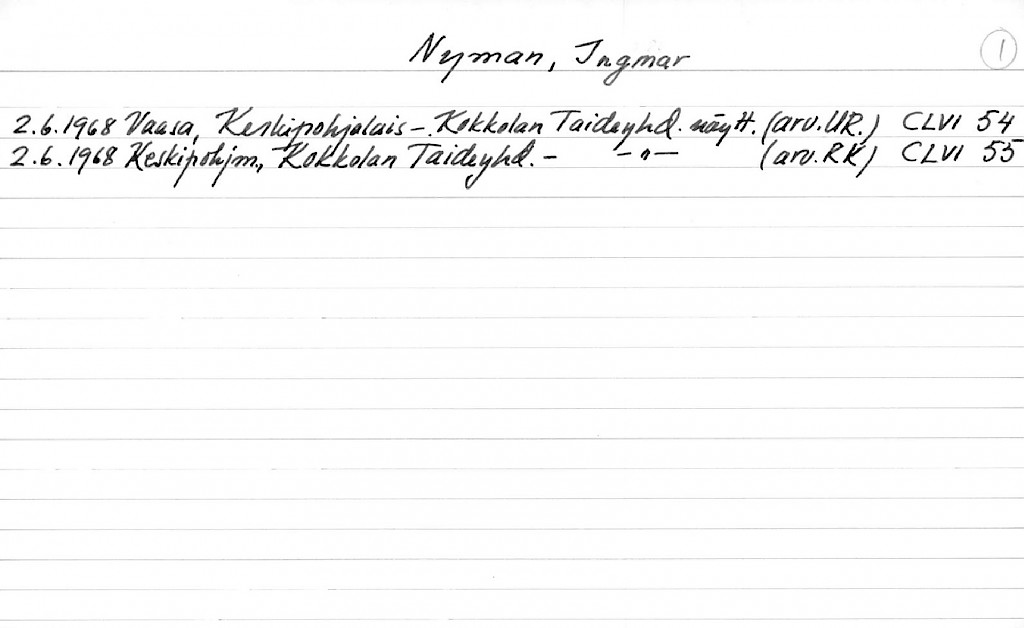 Nyman, Ingmar
1
2.6.1968 Vaasa, Keskipohjalais - Kokkolan Taideyhd. näytt. (arv. UR.) CLVI 54
2.6.1968 Keskipohjm, Kokkolan Taideyhd. - -"- (arv. RK) CLVI 55